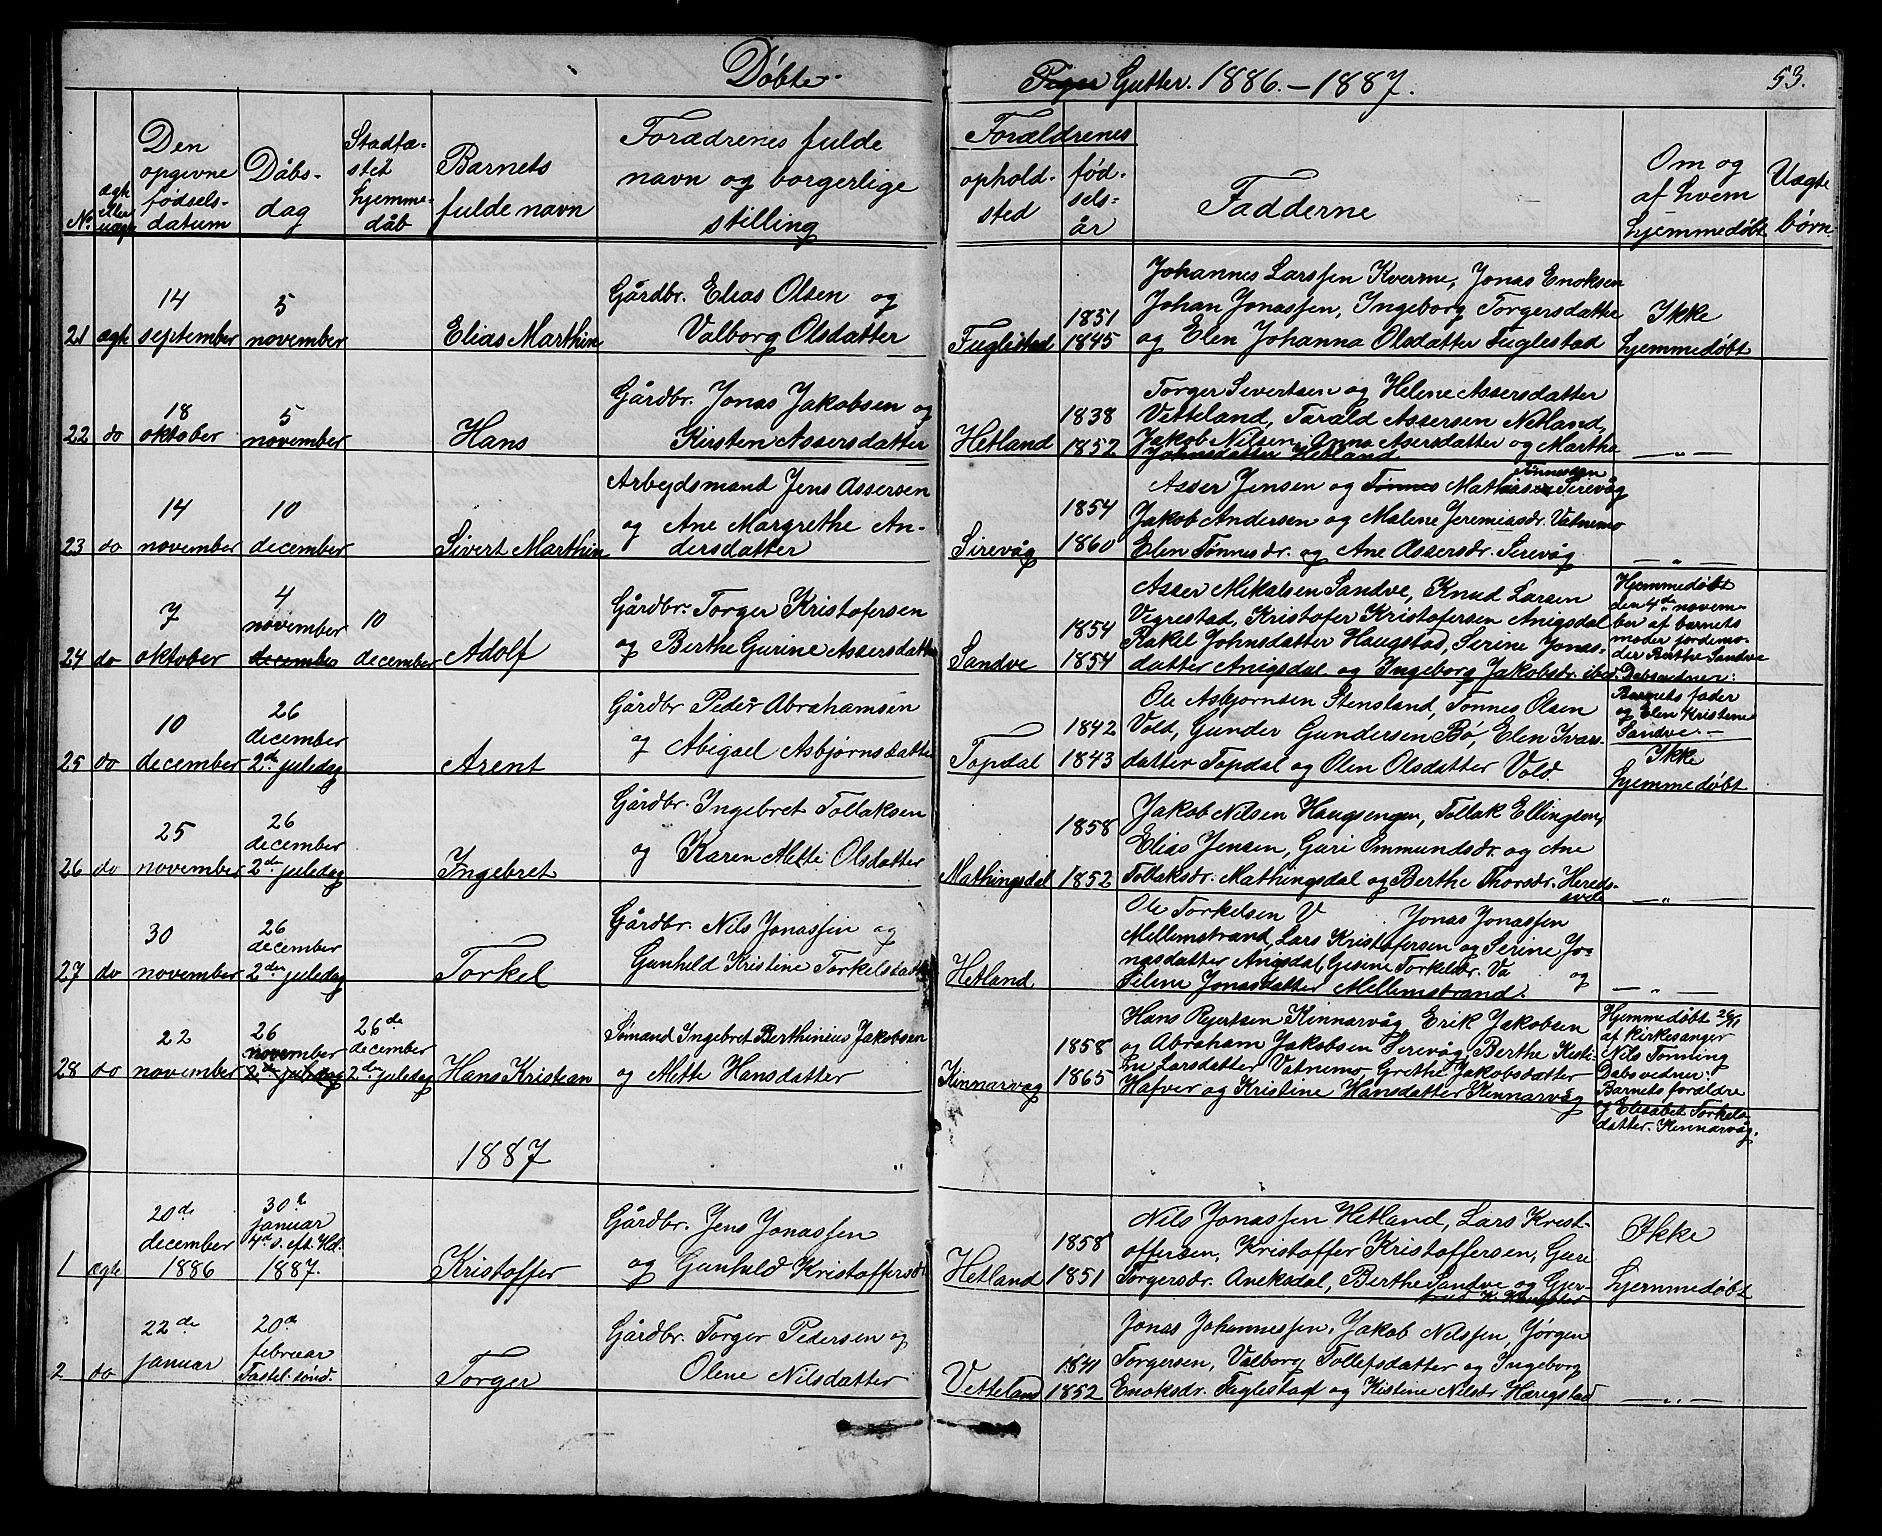 Døbte
Piger Gutter. 1886.–1887.
53.
No.
ægte eller uægte
Den opgivne fødsels-datum
Døbs-dag
Stadfæ-stet hjemme-dåb
Barnets fulde navn
Forædrenes fulde navn og borgerlige stilling
Forældrenes
ophold-sted
fød-sels-år
Fadderne
Om og af hvem hjemmedøbt
Uægte børn.
21 ægte
14 september
5 november
Elias Marthin
Gårdbr. Elias Olsen og
Valborg Olsdatter
Fuglestad
1851
1845
Johannes Larssen Kverme, Jonas Enoksen
Johan Jonassen, Ingeborg Torgersdatter
og Elen Johanna Olsdatter Fuglestad
Ikke
hjemmedøbt
22 do
18 oktober
5 november
Hans
Gårdbr. Jonas Jakobsen og
Kirsten Assersdatter
Hetland
1838
1852
Torger Sivertsen og Helene Assersdatter
Vetteland, Tarald Assersen Netland,
Jakob Nilsen, Anna Asersdatter og Martha
Johnsdatter Hetland
— „ —
23 do
14 november
10 december
Sivert Marthin
Arbejdsmand Jens Assersen
og Ane Margrethe An-
dersdatter
Sirevåg
1854
1860
Tønnessen
Asser Jensen og Tønnes Mathias Sirevåg
Jakob Andersen og Malene Jeremiasdr. Vatnemo
Elen Tønnesdr. og Ane Assersdr. Sirevåg
— „ —
24 do
7 oktober
4 november
december
10 december
Adolf
Gårdbr. Torger Kristofersen
og Berthe Gurine Assersdatter
Sandve
1854
1854
Asser Mikalsen Sandve, Knud Larsen
Vegrestad, Kristofer Kristofersen Anigsdal
Rakel Johnsdatter Haugstad, Serine Jonas-
datter Anigsdal og Ingeborg Jakobsdr. ibid.
Hjemmedøbt
den 4de novem-
ber af barnets
moder jordemo-
der Berthe Sandve
Dabsvidner:
Barnets fader
og Elen Kristine
Sandve. —
25 do
10 december
26 december
2den juledag
Arent
Gårdbr Peder Abrahamsen
og Abigael Asbjørnsdatter
Topdal
1842
1843
Ole Asbjørnsen Stensland, Tønnes Olsen
Vold, Gunder Gundersen Bø, Elen Ivars-
datter Topdal og Olen Olsdatter Vold
Ikke
hjemmedøbt
26 do
25 november
26 december
2den juledag
Ingebret
Gårdbr. Ingebret Tollaksen
og Karen Mette Olsdatter
Mathingsdal
1858
1852
Jakob Nilsen Haugsengen, Tollak Ellingsen,
Elias Jensen, Guri Ommundsdr. og Ane
Tollaksdr. Mathingsdal og Berthe Thorsdr. Hereds-
vele
— „ —
27 do
30 november
26 december
2den juledag
Torkel
Gårdbr. Nils Jonassen og
Gunhild Kristine Torkelsdatter
Hetland
Ole Torkelsen V Jonas Jonassen
Mellemstrand, Lars Kristofersen og Serine Jo-
nasdatter Anigsdal, Gesine Torkelsdr. Va og
Silene Jonasdatter Mellemstrand.
— „ —
28 do
22 november
26 november
2den juledag
26de december
2den juledag
Hans Kristian
Sømand Ingebret Berthinius Jakobsen
og Mette Hansdatter
Kinnarvåg
1858
1865
Hans Rejertsen Kinnarvåg, Erik Jakobsen
og Abraham Jakobsen Serevåg, Berthe Kisti-
ne Larsdatter Vatnemo, Grethe Jakobsdatter
Hafver og Kristine Hansdatter Kinnarvåg
Hjemmedøbt 26/11
af kirkesanger
Nils Tonning
Dabsvidner:
Barnets forældre
og Elisabet Torkels-
datter. Kinnarvåg.
1887
1 ægte
20de december 1886
30te januar
4de s. eft. Hel.
1887.
Kristoffer
Gårdbr. Jens Jonassen
og Gunhild Kristoffersdr
Hetland
1858
1851
Nils Jonassen Hetland, Lars Krist-
offersen, Kristoffer Kristoffersen, Gure
Torgersdr. Aneksdal, Berthe Sandve og Gjer-
Ikke
hjemmedøbt
2 do
22de januar
20de februar
Fastel. sønd.
Torger
Gårdbr. Torger Pedersen og
Olene Nilsdatter
Vetteland
1841
1852
Jonas Johannessen, Jakob Nilssen, Jørgen
Torgersen, Valborg Tollefsdatter og Ingeborg
Enoksdr. Fuglestad og Kistine Nilsdr. Hærigstad
— „ —